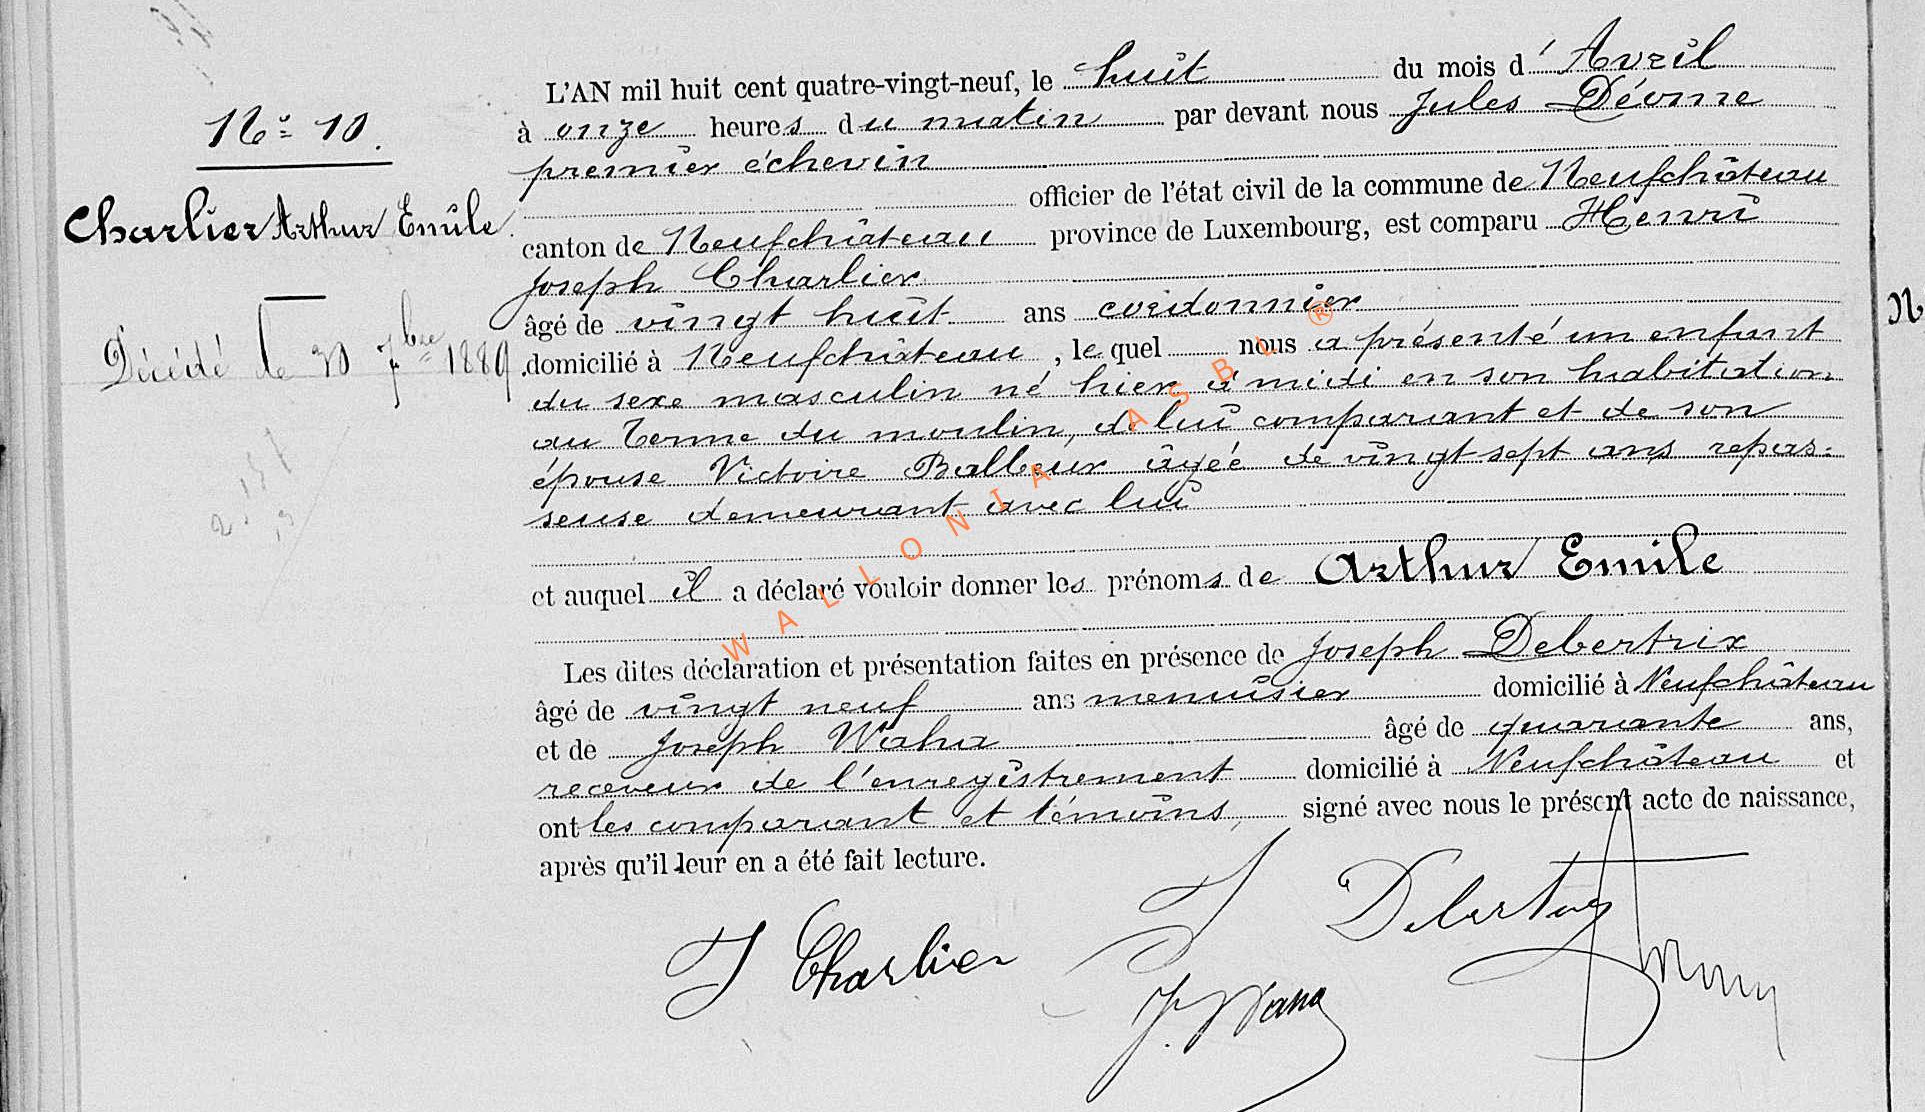 L'AN mil huit cent quatre-vingt-neuf, le huit du mois d'Avril
à onze heures du matin par devant nous Jules Déome
premier échevin
officier de l'état civil de la commune de Neufchâteau
canton de Neufchâteau province de Luxembourg, est comparu Henri
Joseph Charlier
âgé de vingt huit ans cordonnier
domicilié à Neufchâteau, le quel nous a présenté un enfant
du sexe masculin né hier à midi en son habitation
au Terme du moulin, de lui comparant et de son
épouse Victoire Balleux âgée de vingt sept ans repas=
seuse demeurant avec lui
et auquel il a déclaré vouloir donner les prénoms de Arthur Emile
Les dites déclaration et présentation faites en présence de Joseph Debertrix
âgé de vingt neuf ans menuisier domicilié à Neufchâteau
et de Joseph Waha âgé de quarante ans,
receveur de l'enregistrement domicilié à Neufchâteau et
ont les comparant et témoins, signé avec nous le présent acte de naissance,
après qu'il leur en a été fait lecture.
J Charlier
J. Waha
N° 10.
Charlier Arthur Emile.
Décédé le 30 7bre 1889.
WALLONIA ASBL ®